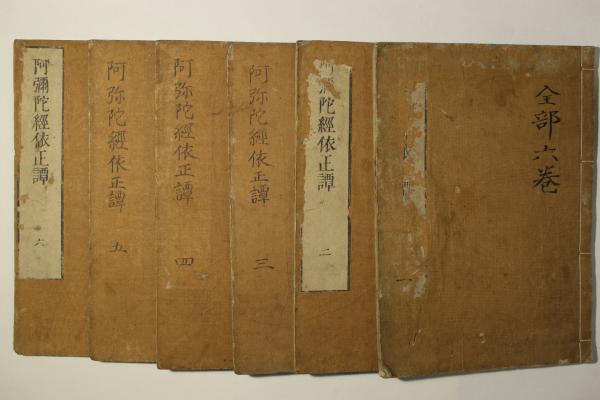 全部六巻
一
阿弥陀經依正譚
二
阿弥陀經依正譚
三
阿弥陀經依正譚
四
阿弥陀經依正譚
五
阿彌陀經依正譚
六